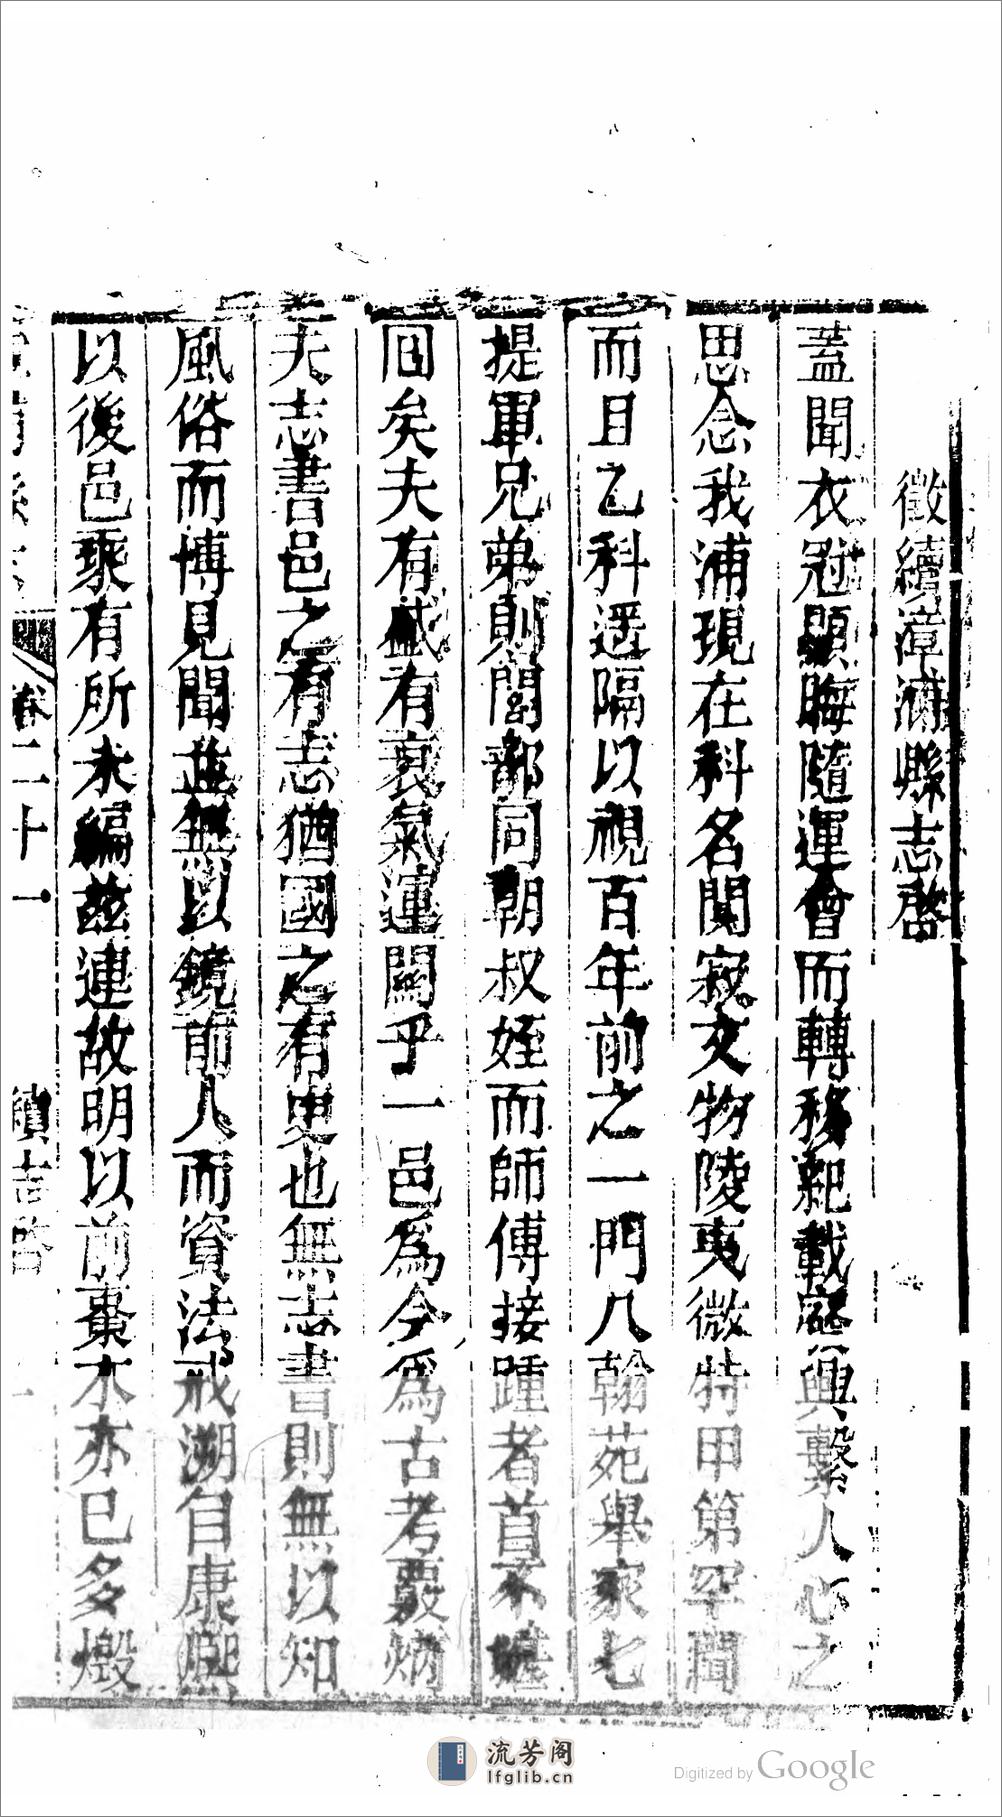 徵續漳浦縣志啓
蓋聞衣冠顯晦隨運會而轉移紀載廢興繫人心之
思念我浦現在科名闃寂文物陵夷微特甲第罕聞
而且乙科遥隔以視百年前之一門八翰苑舉家七
提軍兄弟則閣部同朝叔姪而師傅接踵者首不堪
回矣夫有盛有衰氣運關乎一邑爲今爲古考覈炳
夫志書邑之有志猶國之有史也無志書則無以知
風俗而博見聞並無以鏡前人而資法戒溯自康熙
以後邑乘有所未編兹連故明以前棗木亦已多燬
卷二十一
續志啓
流芳阁
lfglib.cn
Digitized by Google